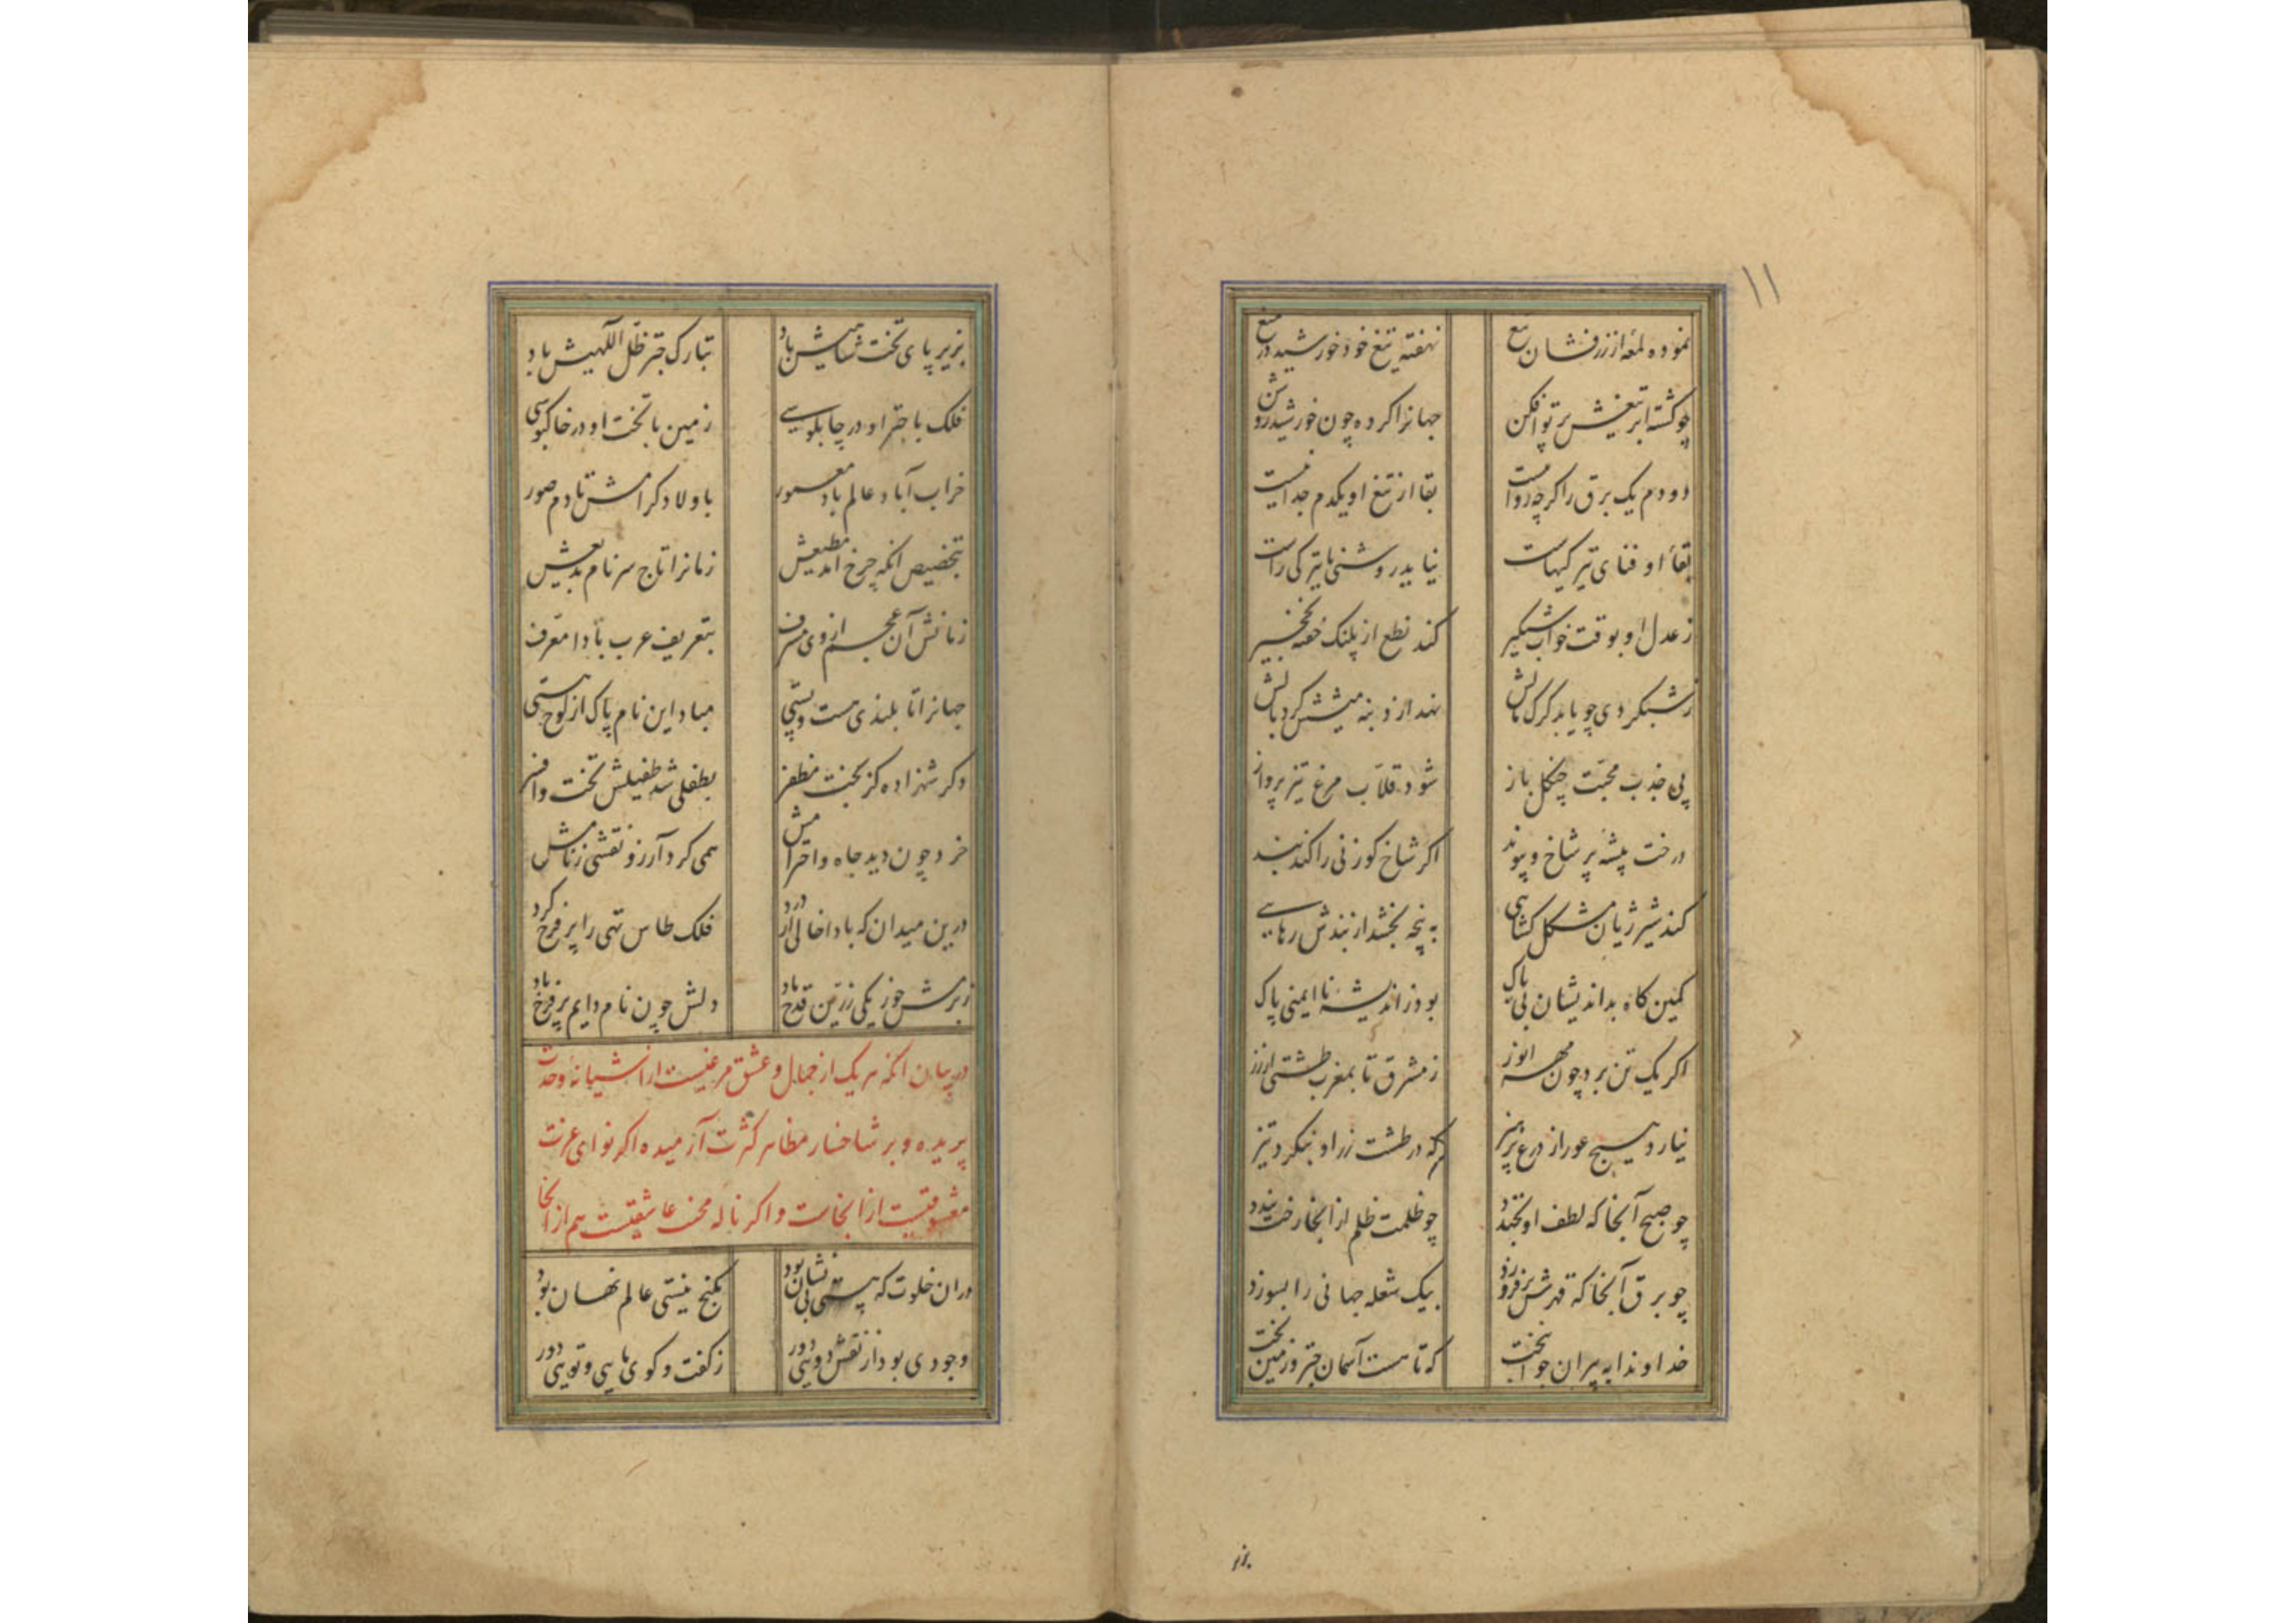 ١١
نموده لمعه از زرفشان میغ نهفته تیغ خود خورشید در میغ
چو گشته ابر تیغش پرتو افکن جهانرا کرده چون خورشید روشن
دو دم یک برق را گرچه روا نیست بقا از تیغ او یکدم جدا نیست
بقاء او فنای تیرگیهاست نیاید روشنی با تیرگی راست
ز عدل او بوقت خواب شبگیر کند نطع از پلنک خفته نخجیر
ز شبگردی چو یابد گرگ مالش نهد از دنبه میشش گرد بالش
پی جذب محبت چنگل باز شود قلاب مرغ تیز پرواز
درخت بیشه پر شاخ و پیوند اگر شاخ گوزنی را کند بند
کند شیر ژیان مشکل کشایی به پنجه بخشد از بندش رهایی
کمین کاه بداندیشان بی باک بود ز اندیشه نا ایمنی پاک
اگر یک تن برد چون مهر انور ز مشرق تا بمغرب طشتی از زر
نیارد هیچ عور از درع پرهیز که در طشت زر او بنگرد تیز
چو صبح آنجا که لطف او بخندد چو ظلمت ظلم از آنجا رخت بندد
چو برق آنجا که قهرش برفروزد بیک شعله جهانی را بسوزد
خداوندا به پیران جوانبخت که تا هست آسمان چتر و زمین تخت
بزیر
بزیر پای تخت شاهیش باد تبارک چتر ظل اللهیش باد
فلک با چتر او در چاپلوسی زمین با تخت او در خاکبوسی
خراب آباد عالم باد معمور باولاد کرامش تا دم صور
بتخصیص انکه چرخ آمد مطیعش زمانرا تاج سر نام بدیعش
زمانش آن عجم از وی مشرف بتعریف عرب بادا معرف
جهانرا تا بلندی هست و پستی مباد این نام پاک از لوح هستی
دگر شهزاده کز بخت مظفر بطفلی شد طفیلش تخت و افسر
خرد چون دید جاه و احترامش همی کرد آرزو نقشی ز نامش
درین میدان که بادا خالی از درد فلک طاس تهی را پر فرح کرد
ز بزمش خور یکی زرین قدح باد دلش چون نام دایم پر فرح باد
در بیان آنکه هر یک از جمال و عشق مرغیست از آشیانه وحدت
پریده و بر شاخسار مظاهر کثرت آرمیده اگر نوای عزت
معشوقیست از آنجاست و اگر ناله محنت عاشقیست هم از آنجا
دران خلوت که هستی بی نشان بود بکنج نیستی عالم نهان بود
وجودی بود از نقش دویی دور ز گفت و گوی مایی و تویی دور